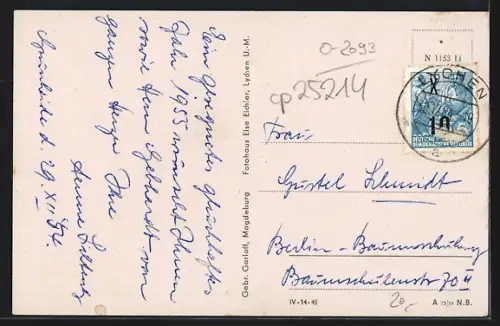 Ein gesegnetes, glückhaftes
Jahr 1955 wünscht Ihnen
sowie Herrn Gebhardt von
ganzem Herzen Ihre
Hanna
d. 29. XII. 54.
Gebr. Garloff, Magdeburg Fotohaus Else Eichler, Lychen U.-M.
O-2093
cp25214
N 1153 13
LYCHEN
X
10
DEUTSCHE
DEMOKRATISCHE REPUBLIK
a
Frau
Gustel Schmidt
Berlin - Baumschulweg
Baumschulenstr. 70 II
20,-
IV-14-45
A 73/54 N.B.